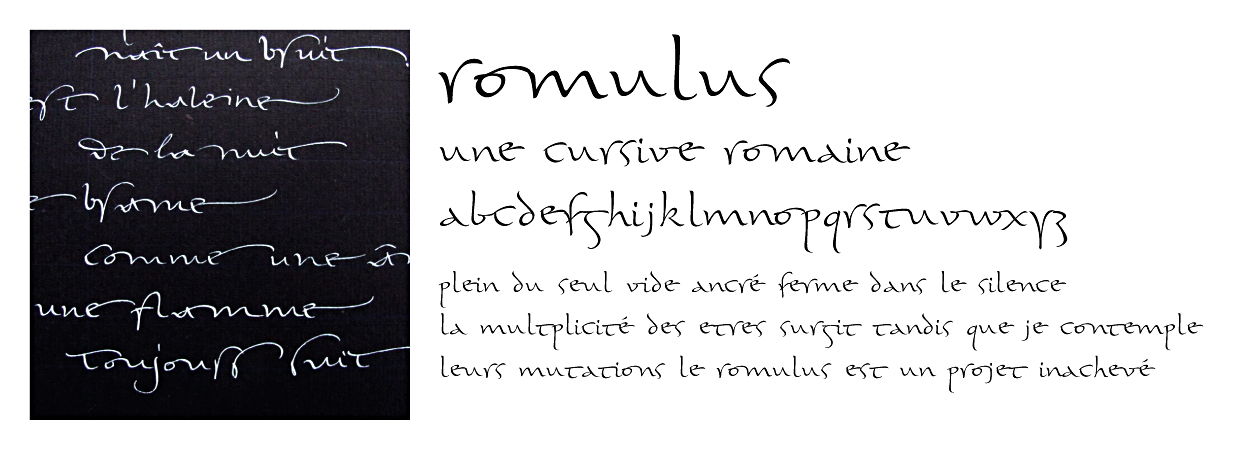 naît un bruit
est l'haleine
de la nuit
brame
comme une
une flamme
toujours suit
romulus
une cursive romaine
abcdefghijklmnopqrstuvwxyz
plein du seul vide ancré ferme dans le silence
la multplicité des etres surgit tandis que je contemple
leurs mutations le romulus est un projet inachevé